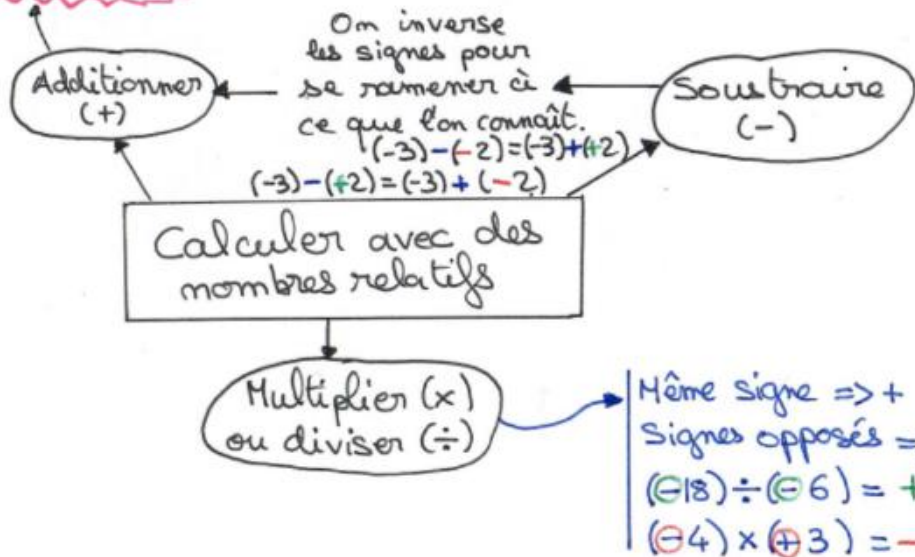 On inverse
les signes pour
se ramener à
ce que l'on connaît.
Additionner
(+)
Soustraire
(-)
(-3)-(-2)=(-3)+(+2)
(-3)-(+2)=(-3)+(-2)
Calculer avec des
nombres relatifs
Multiplier (x)
ou diviser (÷)
Même signe => +
Signes opposés =
(-18)÷(-6) = +
(-4)×(+3) = -